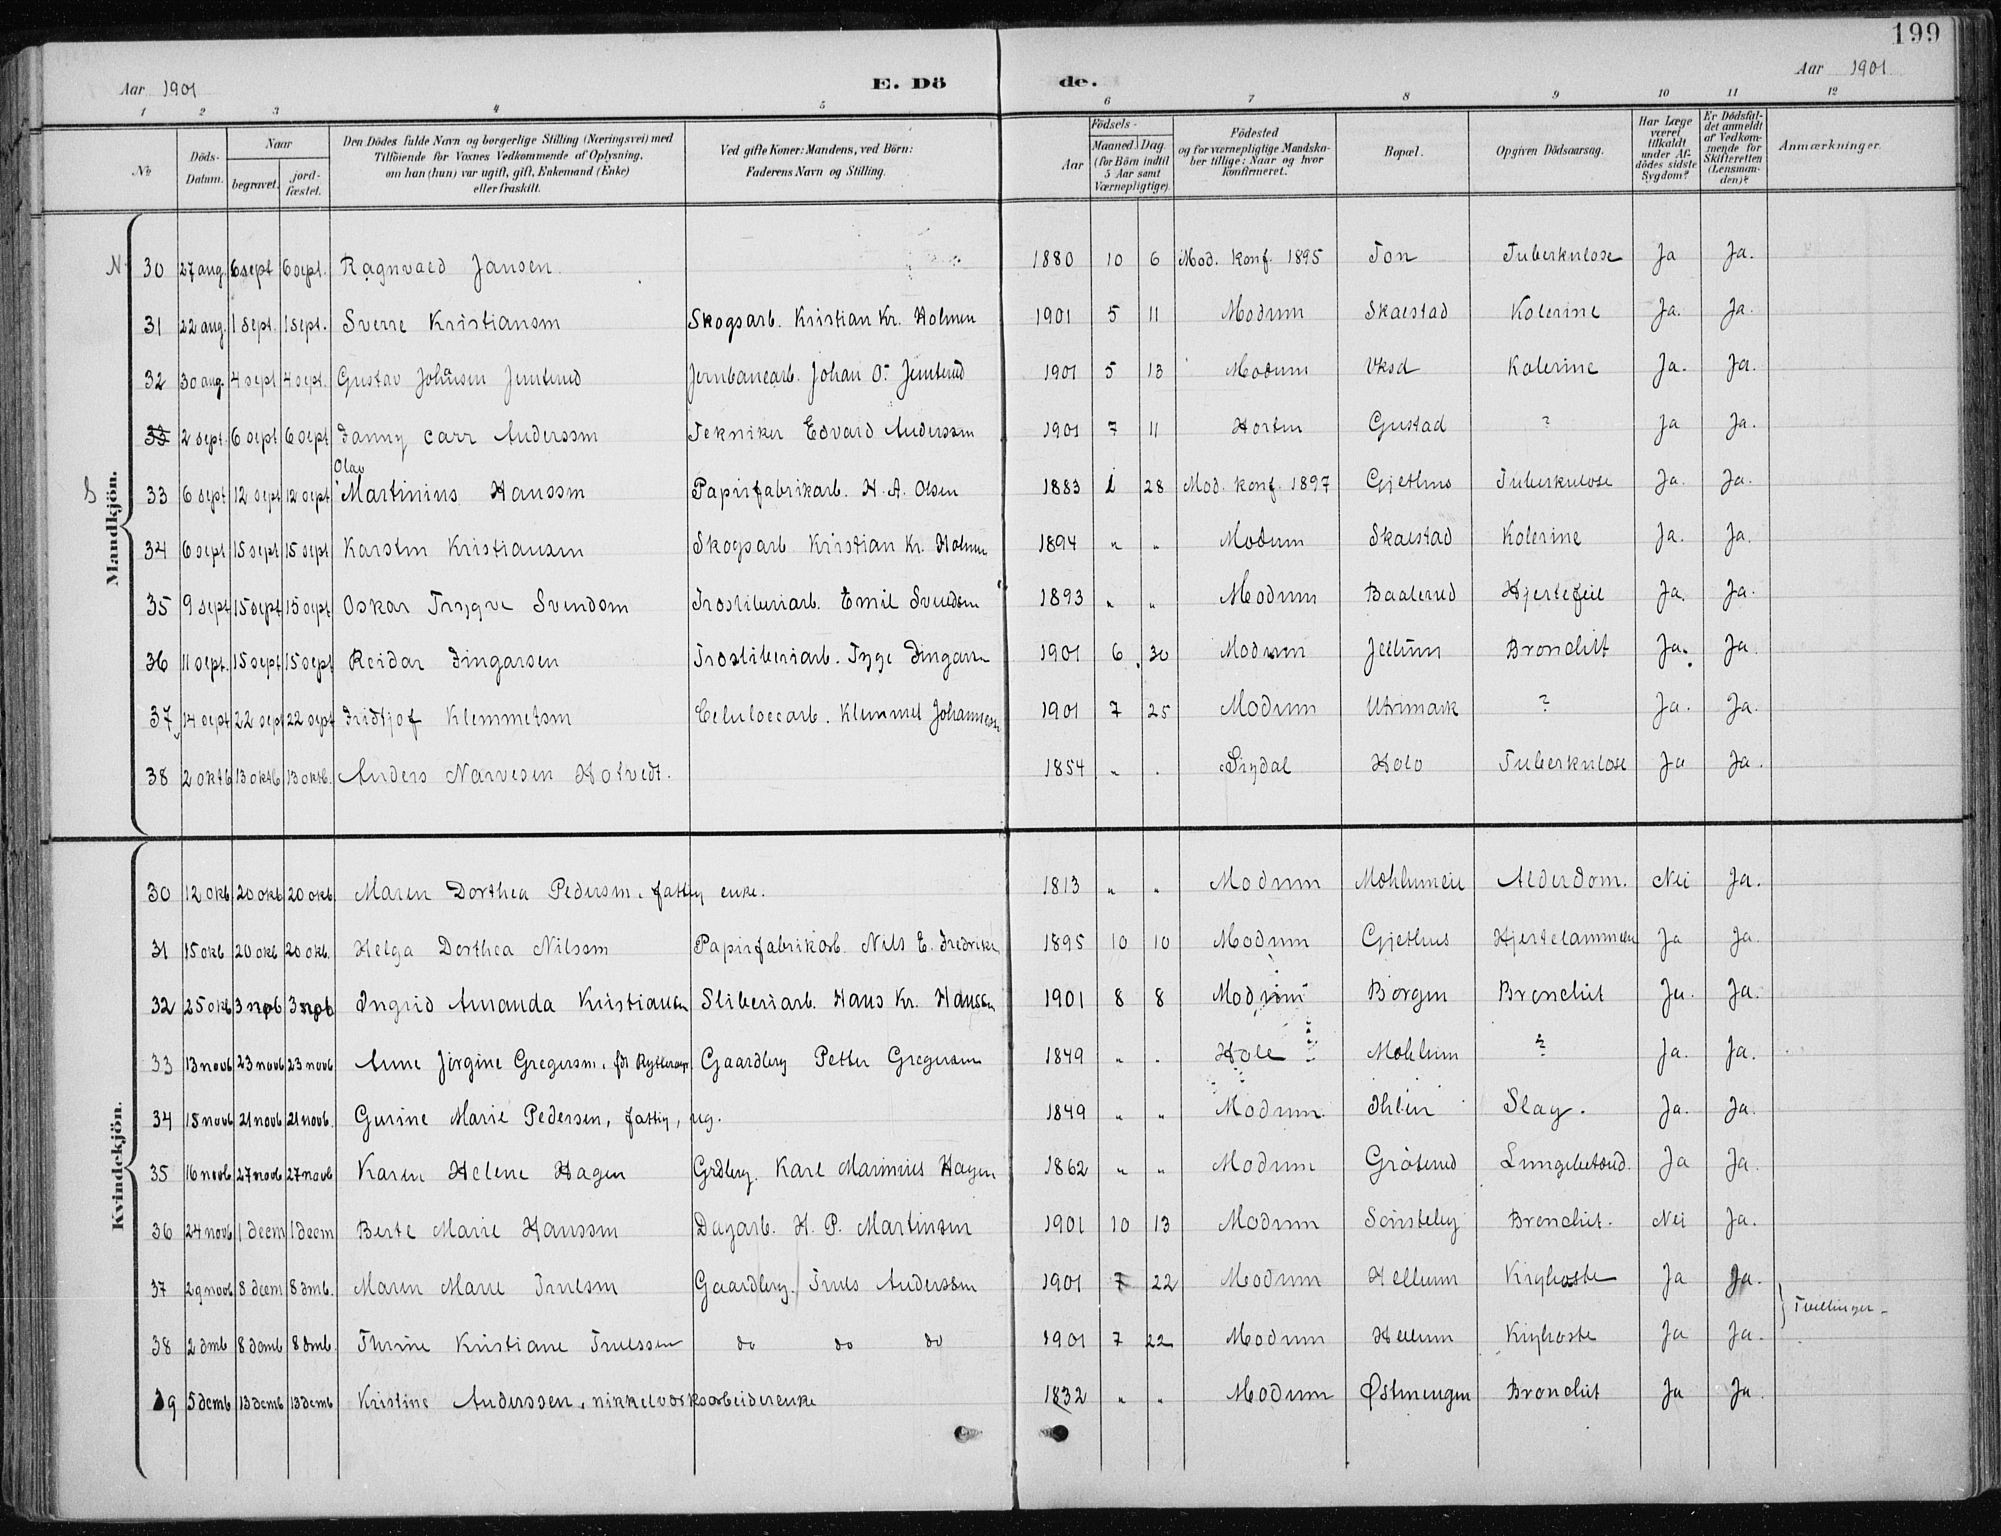 199
Aar 1901 E. Dö de. Aar 1901
1 2 3 4 5 6 7 8 9 10 11 12
№ Döds-Datum. Naar begravet. jordfæstet. Den Dödes fulde Navn og borgerlige Stilling (Næringsvei) med Tilföiende for Voxnes Vedkommende af Oplysning, om han (hun) var ugift, gift, Enkemand (Enke) eller fraskilt. Ved gifte Koner: Mandens, ved Börn: Faderens Navn og Stilling. Födsels- Aar Maaned. Dag. (for Börn indtil 5 Aar samt Værnepligtige). Födested og for værnepligtige Mandskaber tillige: Naar og hvor konfirmeret. Bopæl. Opgiven Dödsaarsag. Har Læge været tilkaldt under Afdödes sidste Sygdom? Er Dödsfaldet anmeldt af Vedkommende for Skifteretten (Lensmanden)? Anmærkninger.
Mandkjön.
N 30 27 aug. 6 sept 6 sept. Ragnvald Jansen. 1880 10 6 Mod. konf. 1895 Ton Tuberkulose Ja Ja.
31 22 aug. 1 sept. 1 sept. Sverre Kristiansen Skogsarb. Kristian Kr. Holmen 1901 5 11 Modum Skalstad Kolerine Ja. Ja.
32 30 aug. 4 sept 4 sept. Gustav Johansen Jemterud Jernbanearb. Johan O. Jemterud 1901 5 13 Modum Kolerine Ja. Ja.
33 2 sept. 6 sept 6 sept Fanny Carr Anderssen Tekniker Edvard Anderssen 1901 7 11 Horten Gustad ? Ja Ja.
Olav
S 33 6 sept 12 sept 12 sept Martinius Hanssen Papirfabrikarb. H. A. Olsen 1883 1 28 Mod. konf. 1897 Gjethus Tuberkulose Ja. Ja.
34 6 sept 15 sept 15 sept Karsten Kristiansen Skogsarb Kristian Kr. Holmen 1894 " " Modum Skalstad Kolerine Ja. Ja.
35 9 sept 15 sept 15 sept Oskar Trygve Svendsen Træsliberiarb. Emil Svendsen 1893 " " Modum Baalerud Hjertefeil Ja. Ja.
36 11 sept. 15 sept 15 sept Reidar Fingarsen Træsliberiarb. Tyge Fingarsen 1901 6 30 Modum Jellum Bronchit Ja. Ja.
37 14 sept 22 sept 22 sept Fridtjof Klemmetsen Celulosearb. Klemmet Johannesen 1901 7 25 Modum Utrimark ? Ja. Ja.
38 2 oktb 13 oktb 13 oktb. Anders Narvesen Hotvedt. 1854 " . Sigdal Holo Tuberkulose Ja Ja.
Kvindekjön.
30 12 okb. 20 okb 20 okb. Maren Dorthea Pedersen, fattig enke. 1813 " " Modum Alderdom. Nei Ja.
31 15 okb 20 okb 20 okb. Helga Dorthea Nilssen Papirfabrikarb. Nils E. Fredriksen 1895 10 10 Modum Gjethus Hjertelammelse Ja Ja.
32 25 okb 3 novb 3 novb Ingrid Amanda Kristiansen Sliberiarb. Hans Kr. Hanssen 1901 8 8 Modum Borgen Bronchit Ja. Ja.
33 13 novb 23 novb 23 novb Anne Jørgine Gregersen, Gaardbrug Petter Gregersen 1849 " . Hole Mehlum ? Ja. Ja.
34 15 novb 21 novb 21 novb. Gurine Marie Pedersen, fattig, ug. 1849 " " Modum. Ihlen Slag. Ja. Ja.
35 16 novb 27 novb 27 novb Karen Helene Hagen Grdbrg. Karl Marinius Hagen 1862 " " Modum Gröterud Lungebetænd. Ja Ja.
36 24 novb 1 decm 1 decm Berte Marie Hanssen Dagarb. H. P. Martinsen 1901 10 13 Modum Sønsteby Bronchit. Nei Ja.
37 29 novb 8 decm 8 dmb. Maren Marie Trulsen Gaardbrug. Truls Anderssen 1901 7 22 Modum Hellum Kighoste Ja Ja.
Tvillinger
38 2 dmb 8 demb 8 dmb. Thrine Kristiane Trulssen do do do 1901 7 22 Modum Hellum Kighoste Ja Ja.
39 5 demb 13 demb 13 demb Kristine Anderssen, nikkelværksarbeiderenke 1832 " " Modum Østmengen Bronchit Ja Ja.